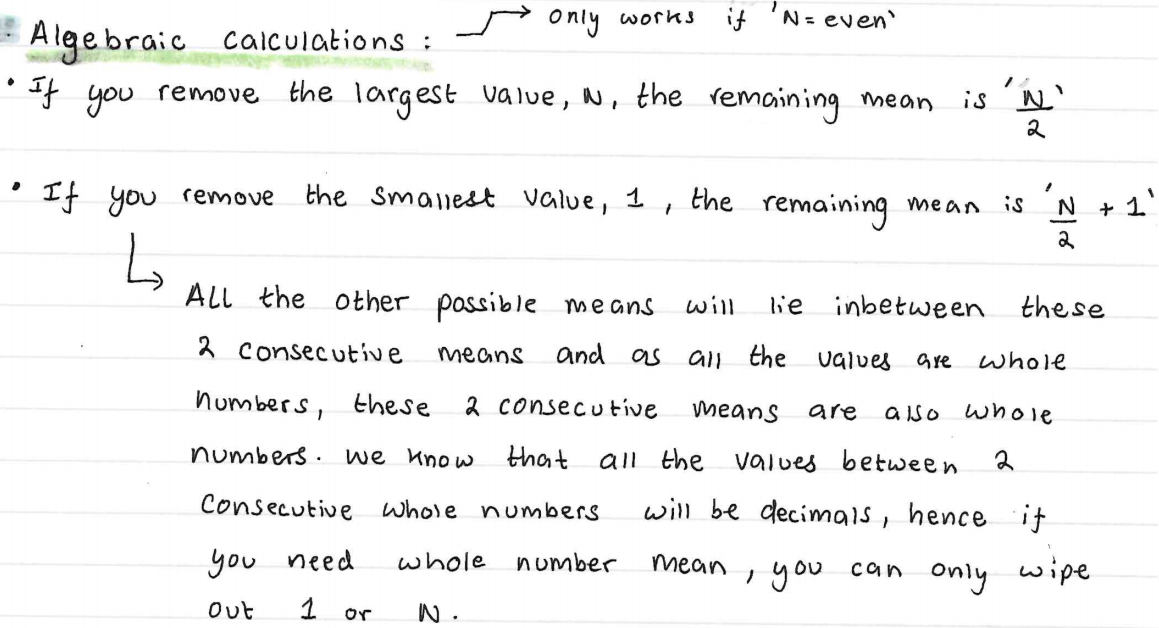 Algebraic calculations : → only works if 'N = even'
• If you remove the largest value, N, the remaining mean is 'N/2'
• If you remove the smallest value, 1, the remaining mean is 'N/2 + 1'
↳ All the other possible means will lie inbetween these
2 consecutive means and as all the values are whole
numbers, these 2 consecutive means are also whole
numbers. We know that all the values between 2
consecutive whole numbers will be decimals, hence if
you need whole number mean, you can only wipe
out 1 or N.